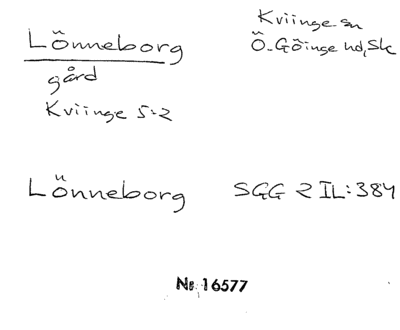 Lönneborg
gård
Kviinge 5:2
Kviinge sn
Ö. Göinge hd, Sk
Lönneborg SGG 2 IL:384
Nr 16577